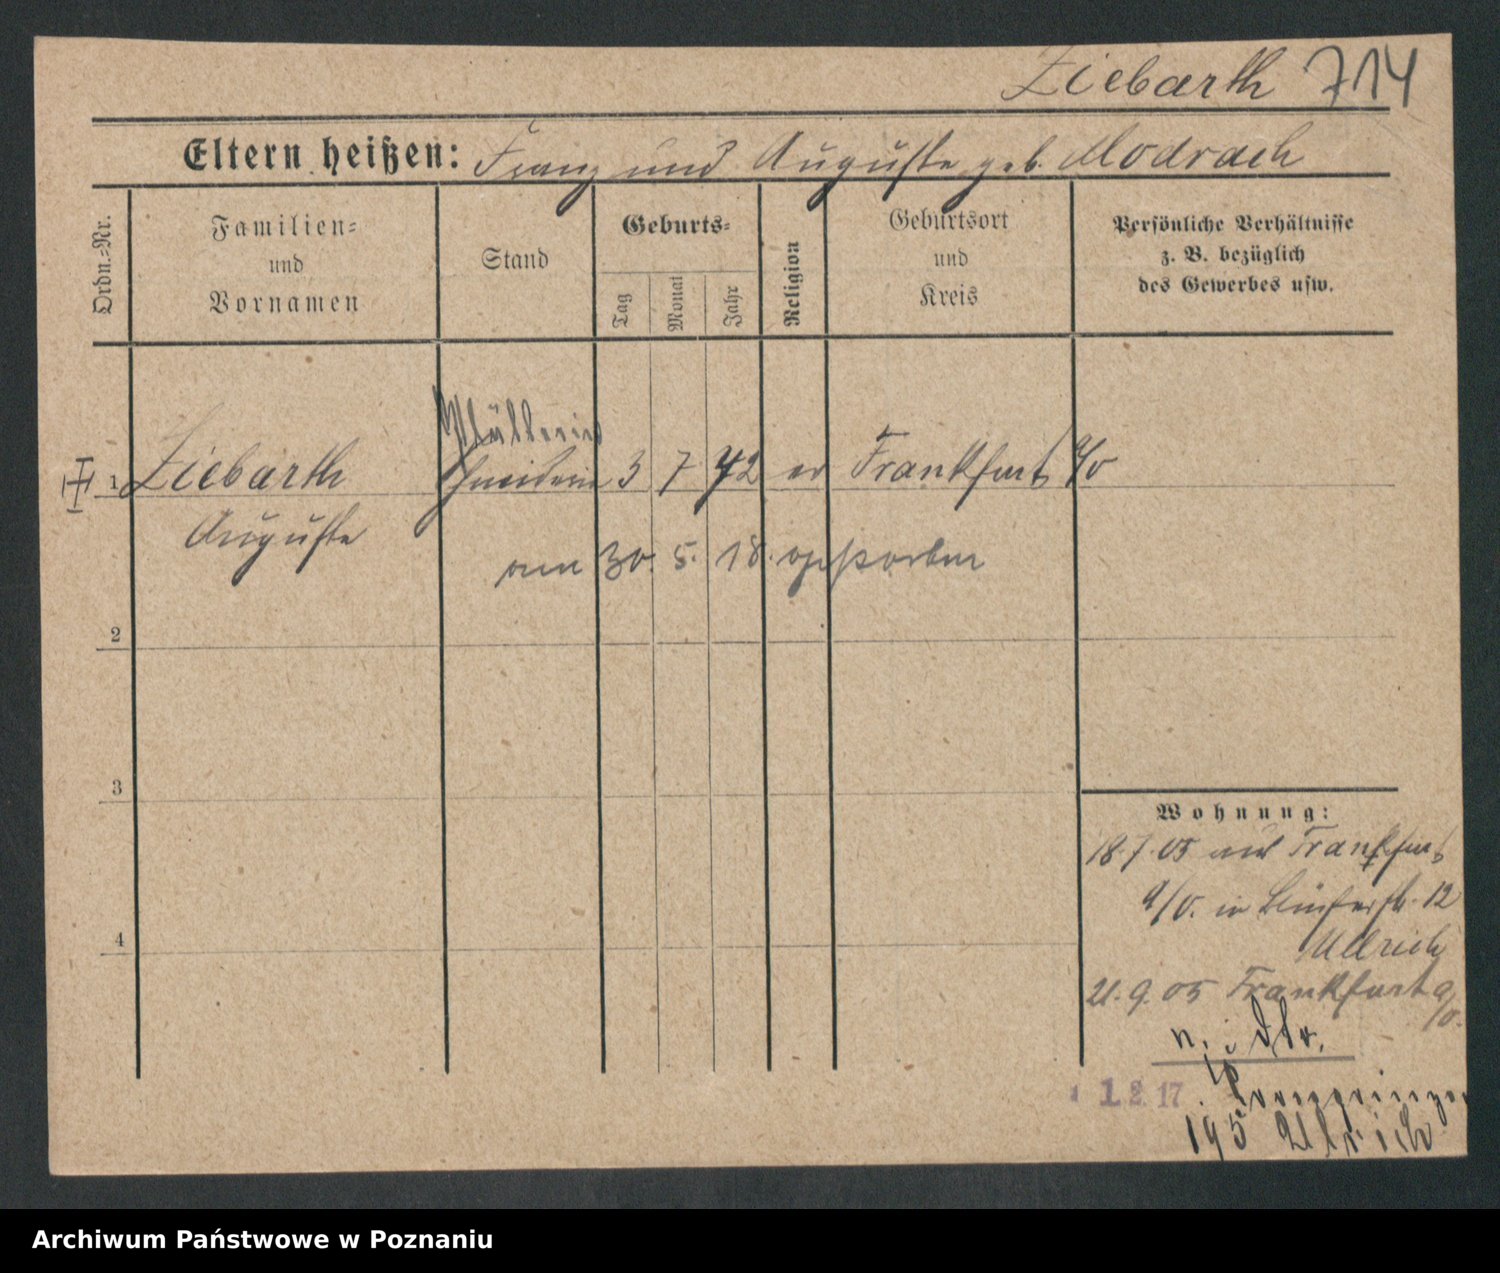 Ziebarth 714
Eltern heißen: Franz und Auguste geb. Modrach
Ordn.=Nr.
Familien=
und
Vornamen
Stand
Geburts=
Tag
Monat
Jahr
Religion
Geburtsort
und
Kreis
Persönliche Verhältnisse
z. B. bezüglich
des Gewerbes usw.
1 Ziebarth 3 7 42 ev Frankfurt a/O
Auguste
am 30. 5. 18. verstorben
2
3
4
Wohnung:
18.7.05 aus Frankfurt
a/O. in 12
Ullrich
21.9.05 Frankfurt a/O.
1 2. 17 Kronprinzen
195 Ullrich
Archiwum Państwowe w Poznaniu